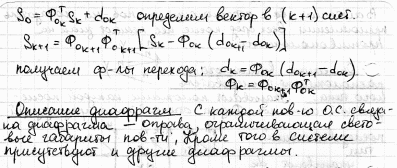 S₀ = Φ₀ₖᵀ Sₖ + d₀ₖ определим вектор в (k+1) сист.
Sₖ₊₁ = Φ₀ₖ₊₁ Φᵀ₀ₖ₊₁ [Sₖ - Φ₀ₖ (d₀ₖ₊₁ - d₀ₖ)]
получаем ф-лы перехода: dₖ = Φ₀ₖ (d₀ₖ₊₁ - d₀ₖ)
Φₖ = Φ₀ₖ₊₁ Φ₀ₖᵀ
Описание диафрагм С каждой пов-ю О.С. связа-
на диафрагма - оправа, ограничивающая свето-
вые габариты пов-ти. Кроме того в системе
присутствуют и другие диафрагмы.